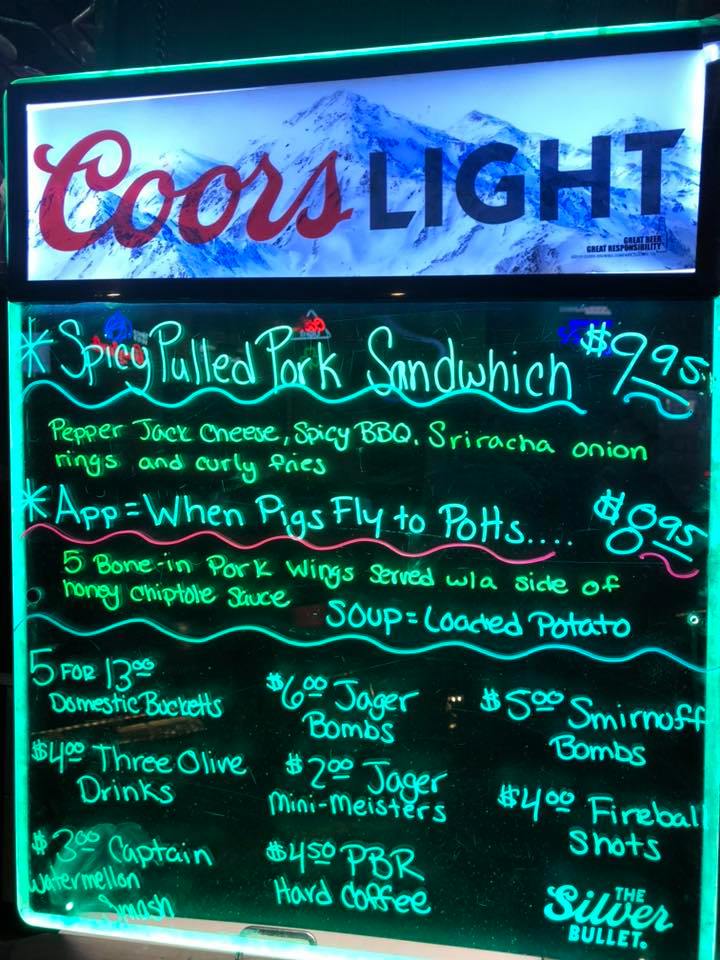 Coors LIGHT
GREAT BEER
GREAT RESPONSIBILITY
* Spicy Pulled Pork Sandwhich $9.95
Pepper Jack Cheese, Spicy BBQ. Sriracha onion
rings and curly fries
* App = When Pigs Fly to Potts.... $8.95
5 Bone-in Pork Wings Served w/a side of
honey Chiptole Sauce
SOUP = Loaded Potato
5 FOR 13.00
Domestic Bucketts
$6.00 Jager
Bombs
$5.00 Smirnoff
Bombs
$4.00 Three Olive
Drinks
$2.00 Jager
Mini-Meisters
$4.00 Fireball
Shots
$3.00 Captain
Watermellon
Smash
$4.50 PBR
Hard Coffee
THE
Silver
BULLET.